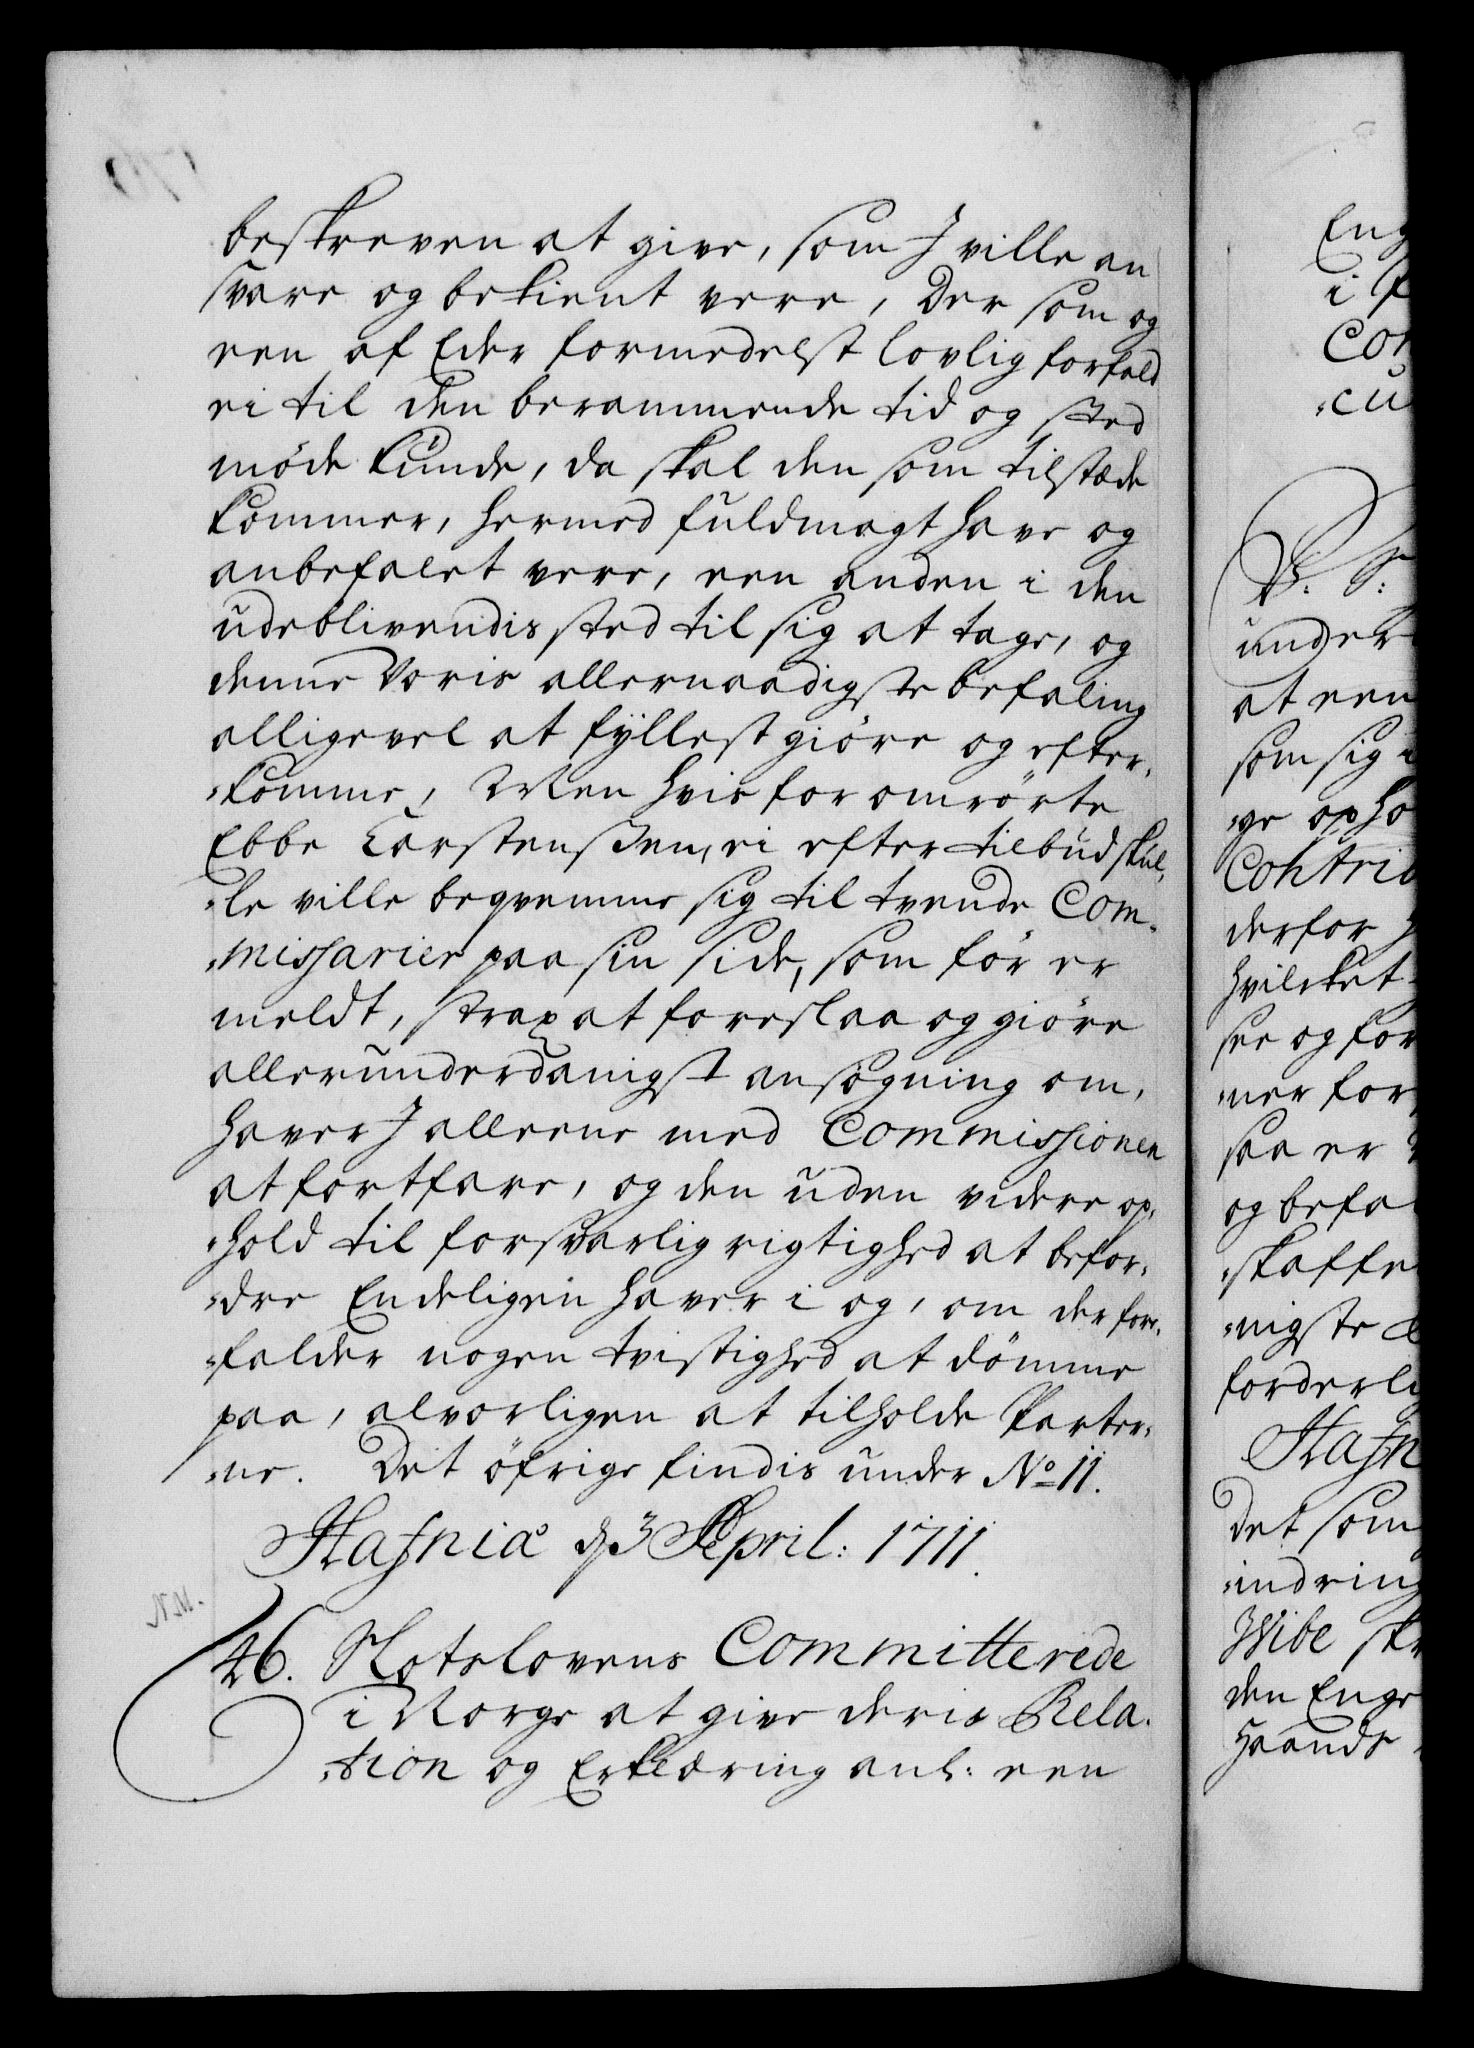 beskreven at give, som I ville an
svare og bekient vere, Der som og
een af Eder formedelst lovlig forfald
ei til den berammende tid og sted
møde kunde, da skal den som tilstæde
kommer, hermed fuldmagt have og
anbefalet vere, een anden i den
udeblivendis sted til sig at tage, og
denne Voris allernaadigste befaling
alligevel at fyllest giöre og efter„
„komme, Men hvis for omrörte
Ebbe Carstenssen, ei efter tilbud skul„
„le ville beqvemme sig til tvende Com„
„missarier paa sin side, som för er
meldt, strax at foreslaa og giöre
allerunderdanigst ansögning om,
haver I alleene med Commissionen
at fortfare, og den uden videre op„
„hold til forsvarlig rigtighed at befor„
„dre Endeligen haver i og, om der fore„
„falder nogen tvistighed at dömme
paa, alvorligen at tilholde Parter„
„ne. Det öfrige findis under No 11.
Hafniæ d. 3 April: 1711.
46. Slotslovens Committerede
i Norge at give deris Rela„
„tion og Erklæring anl: een
Eng
i
Con
„cu
P. S:
under
at een
som sig
„ge opho
Contrib
derfor
hvilcket
see og for
„ner for
saa er
og befa
„skaffe
„nigste
forderli
Hafn
Det som
„indring
Wibe
den Enge
Haands